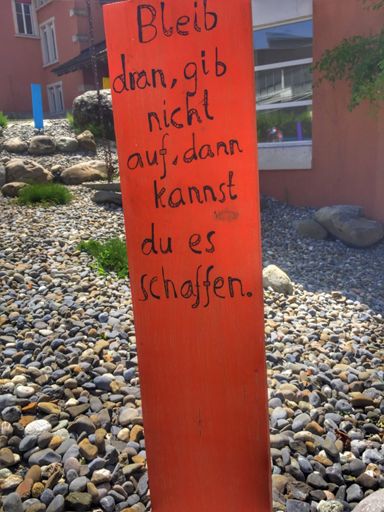 Bleib
dran, gib
nicht
auf, dann
kannst
du es
schaffen.